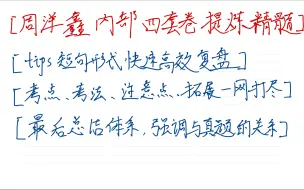 [周洋鑫内部四套卷提炼精髓]
[tips 短句形式快速高效复盘]
[考点、考法、注意点、拓展一网打尽]
[最后总结体系,强调与真题的关系]